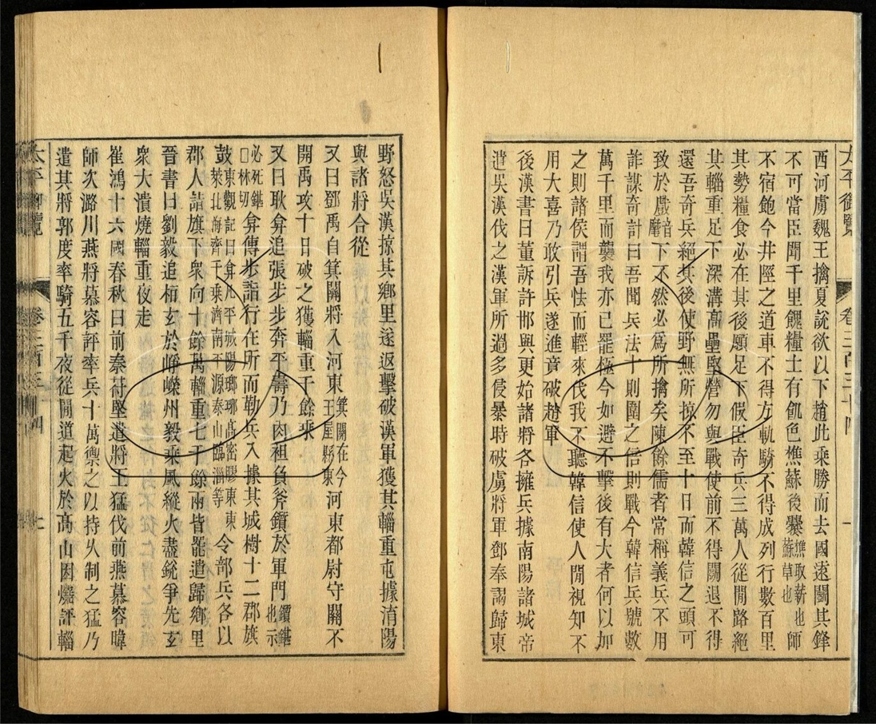 西河虜魏王擒夏說欲以下趙此乘勝而去國遠鬭其鋒
不可當臣聞千里餽糧士有飢色樵蘇後爨樵取薪也蘇草也師
不宿飽今井陘之道車不得方軌騎不得成列行數百里
其勢糧食必在其後願足下假臣奇兵三萬人從間路絕
其輜重足下深溝高壘堅營勿與戰使前不得鬭退不得
還吾奇兵絕其後使野無所掠不至十日而韓信之頭可
致於戲下不然必為所擒矣陳餘儒者常稱義兵不用
詐謀奇計曰吾聞兵法十則圍之倍則戰今韓信兵號數
萬千里而襲我亦已罷極今如避不擊後有大者何以加
之則諸侯謂吾怯而輕來伐我不聽韓信使人間視知不
用大喜乃敢引兵遂進竟破趙軍
後漢書曰董訢許邯與更始諸將各擁兵據南陽諸城帝
遣吳漢伐之漢軍所過多侵暴時破虜將軍鄧奉謁歸東
太平御覽 卷三百三十四
野怒吳漢掠其鄉里遂返擊破漢軍獲其輜重屯據淯陽
與諸將合從
又曰鄧禹自箕關將入河東箕關在今王屋縣東河東都尉守關不
開禹攻十日破之獲輜重千餘乘
又曰耿弇追張步步奔平壽乃肉袒負斧鑕於軍門鑕鍖也示
必死鍖□林切弇傳步詣行在所而勒兵入據其城樹十二郡旗
鼓東觀記曰弇凡平城陽瑯琊高密膠東東萊北海齊千乘濟南平源泰山臨淄等令部兵各以
郡人詣旗下衆尚十餘萬輜重七千餘兩皆罷遣歸鄉里
晉書曰劉毅追桓玄於崢嶸州毅乘風縱火盡銳爭先玄
衆大潰燒輜重夜走
崔鴻十六國春秋曰前秦苻堅遣將王猛伐前燕慕容暐
師次潞川燕將慕容評率兵十萬禦之以持久制之猛乃
遣其將郭度率騎五千夜從間道起火於高山因燒評輜
太平御覽 卷三百三十四 七